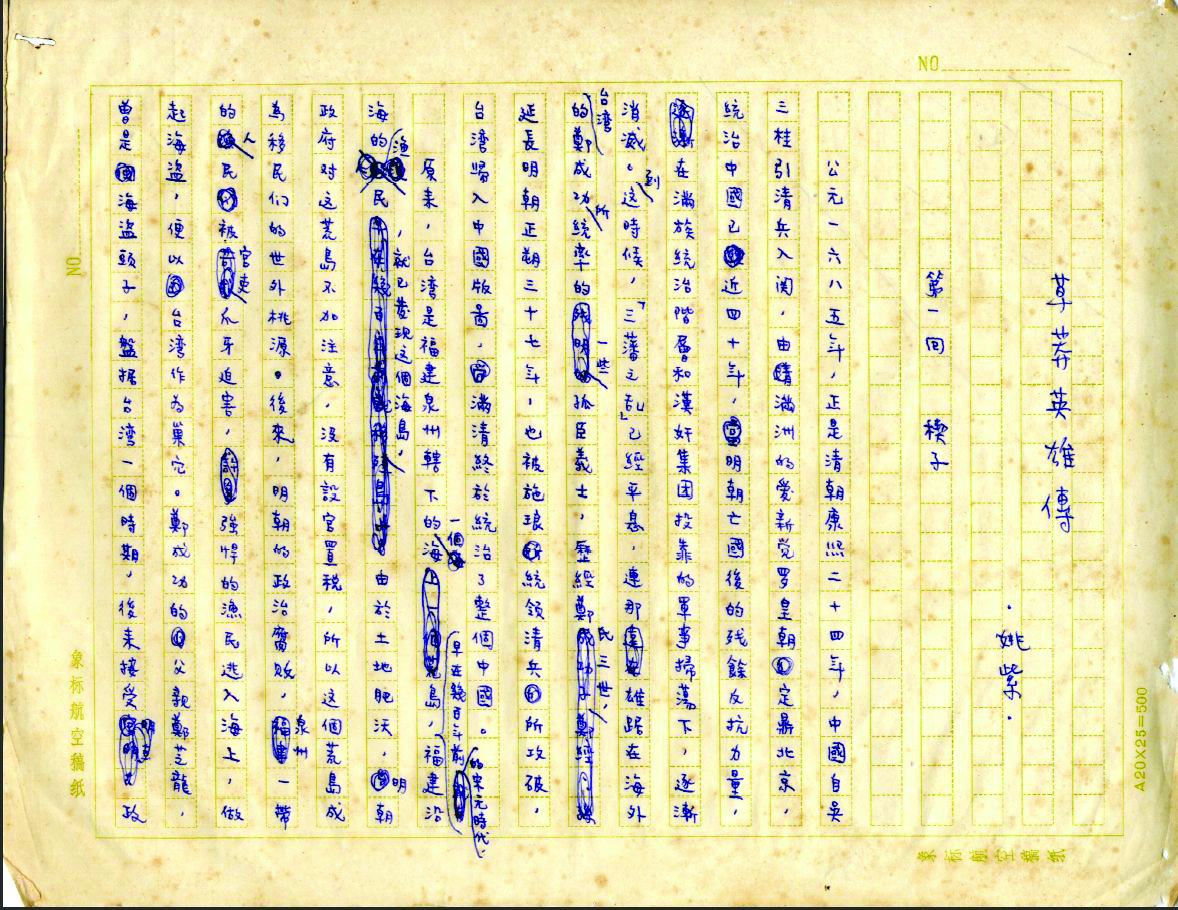 NO
草莽英雄傳
·姚紫·
第一回 楔子
公元一六八五年,正是清朝康熙二十四年,中國自吳
三桂引清兵入関,由滿洲的愛新觉罗皇朝定鼎北京,
統治中國已近四十年,明朝亡國後的残餘反抗力量,
在滿族統治階層和漢奸集团投靠的軍事掃蕩下,逐漸
消滅。这到時候,「三藩之乱」已經平息,連那雄踞在海外
台湾的鄭成功所統率的一些孤臣義士,歷經鄭氏三世、
延長明朝正朔三十七年,也被施琅統领清兵所攻破,
台湾歸入中國版畵,滿清終於統治了整個中國。
原来,台湾是福建泉州轄下的一個海島,早在幾百年前的宋元時代,福建沿
海的漁民,就已發現这個海島,由於土地肥沃,明朝
政府对这荒島不加注意,没有設官置税,所以这個荒島成
為移民们的世外桃源。後來,明朝的政治腐败,泉州一帶
的人民被官吏爪牙迫害,強悍的漁民逃入海上,做
起海盜,便以台湾作為巢穴。鄭成功的父親鄭芝龍,
曾是海盜頭子,盤据台湾一個時期,後来接受明政
NO
象标航空稿纸
象标航空稿纸
A20X25=500